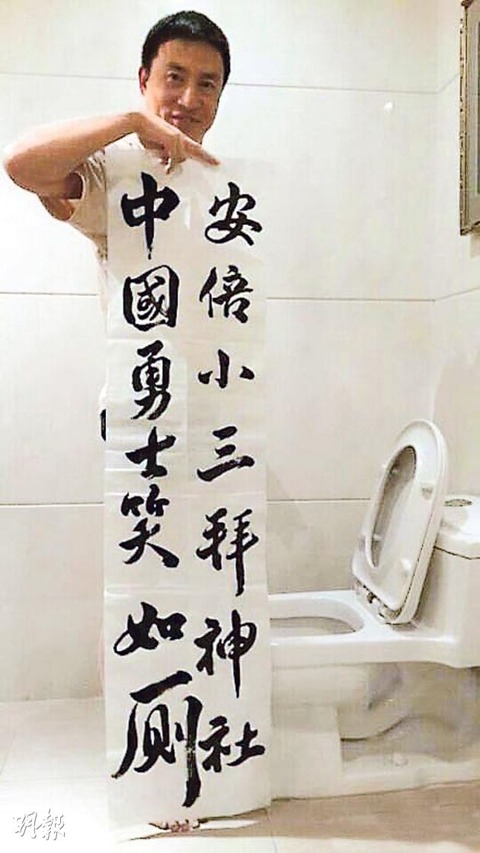 安倍小三拜神社
中國勇士笑如厠
明報